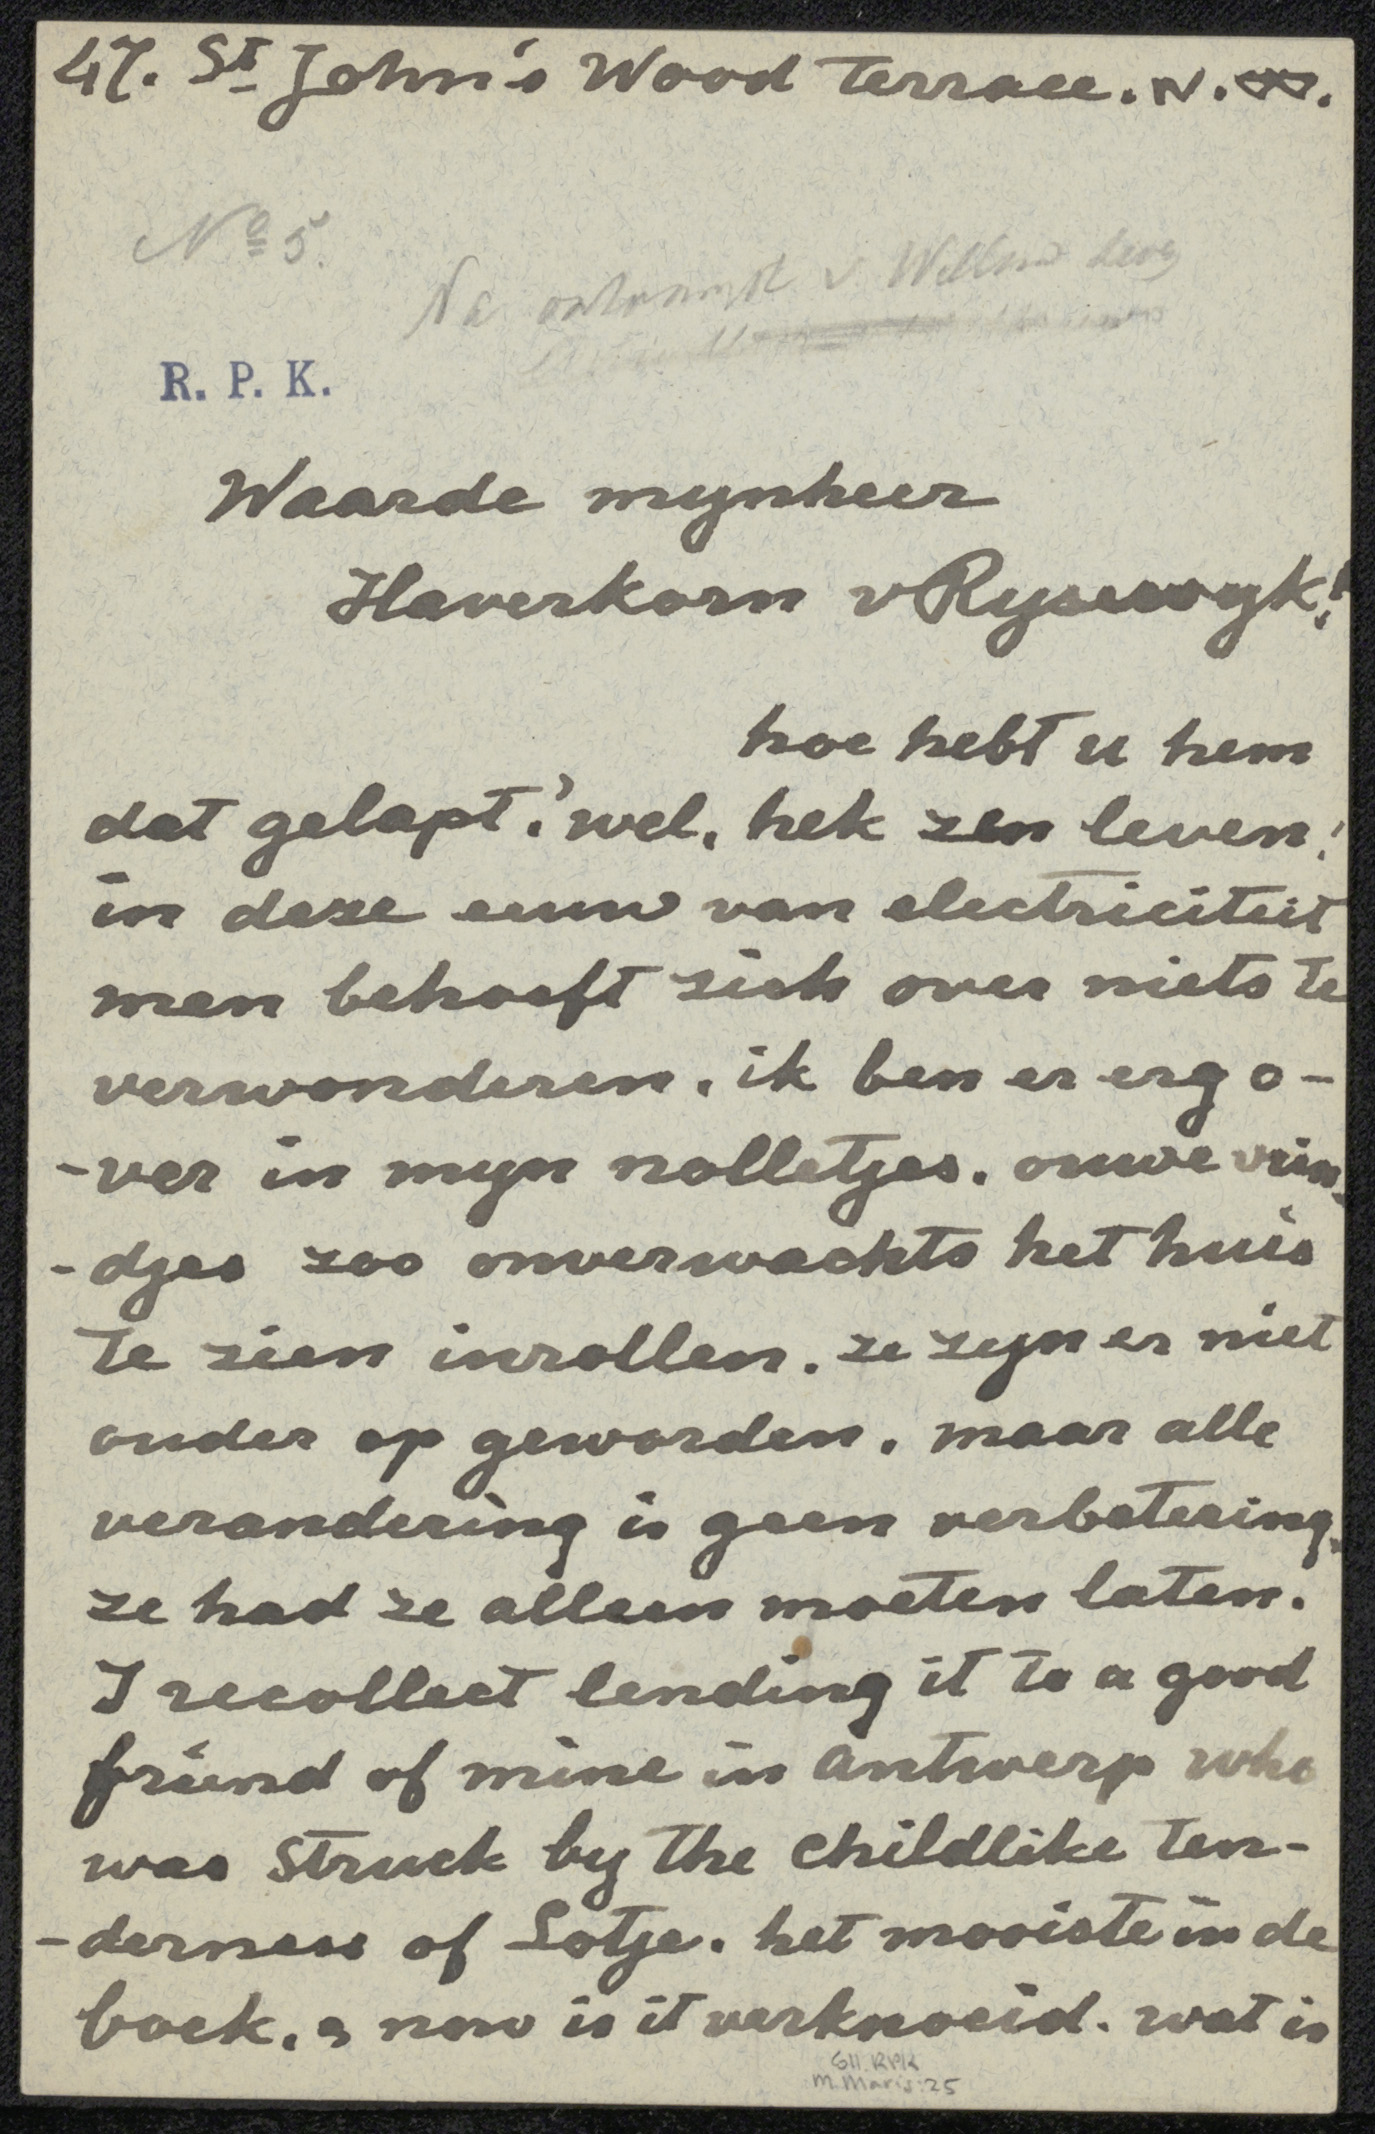 47. St John's Wood Terrace. N.W.
No 5.
Na ontvangst v. Willem
R. P. K.
Waarde mynheer
Haverkorn v Rysewyk!
hoe hebt u hem
dat gelapt? wel, hek zen leven!
in deze eeuw van electriciteit
men behoeft zich over niets te
verwonderen. ik ben er erg o-
-ver in myn nolletjes. ouwe vrin-
-djes zoo onverwachts het huis
te zien inrollen. ze zyn er niet
ouder op geworden. maar alle
verandering is geen verbetering.
ze had ze alleen moeten laten.
I recollect lending it to a good
friend of mine in Antwerp who
was struck by the childlike ten-
-derness of Lotje. het mooiste in de
boek. & now is it verknoeid. wat is
611. RPK
M. Maris: 25